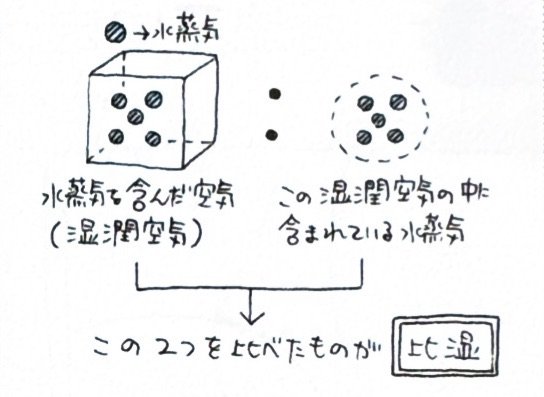 →水蒸気
:
水蒸気を含んだ空気
(湿潤空気)
この湿潤空気の中に
含まれている水蒸気
この2つを比べたものが 比湿